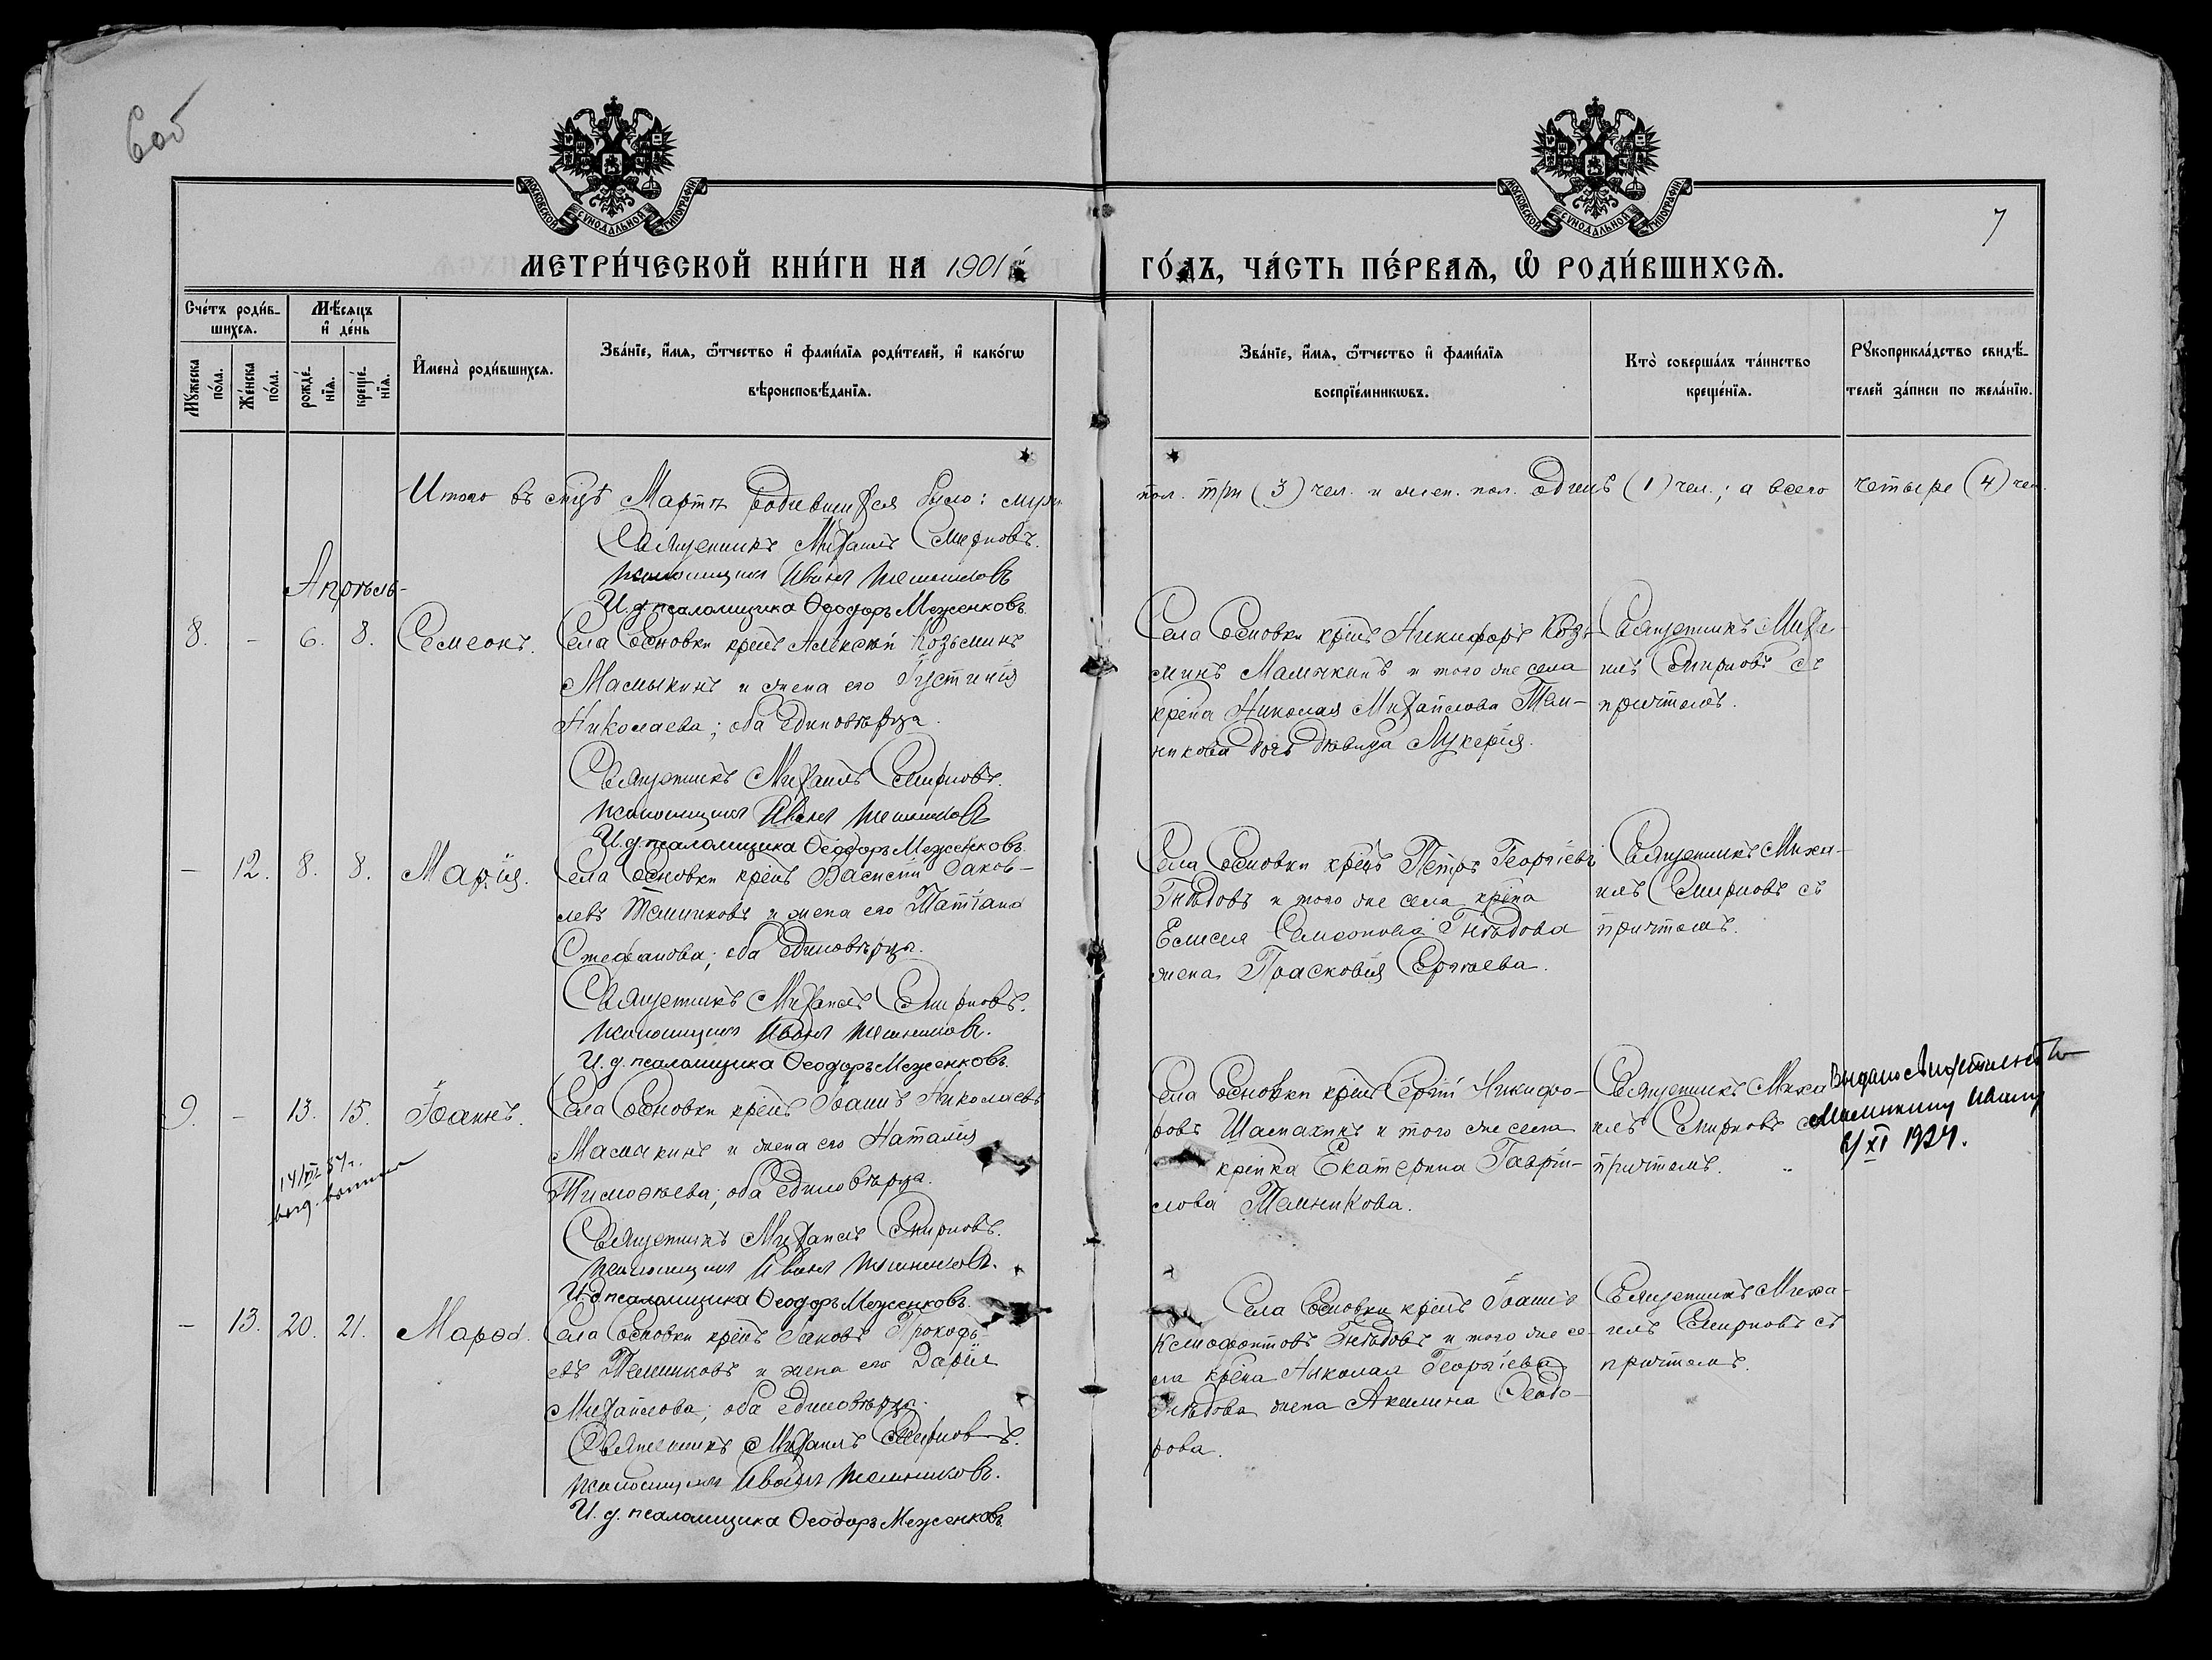 6об
7
МОСКОВСКОЙ СѴНОДАЛЬНОЙ ТИПОГРАФІИ
МОСКОВСКОЙ СѴНОДАЛЬНОЙ ТИПОГРАФІИ
МЕТРИ́ЧЕСКОЙ КНИ́ГИ НА 1901 й ГО́ДЪ, ЧА́СТЬ ПЕ́РВАЯ, Ѡ РОДИ́ВШИХСЯ.
Сче́тъ роди́в-
шихся.
Мѣ́сяцъ
и де́нь
Мꙋ́жеска
по́ла.
Же́нска
по́ла.
рожде́-
нїя.
креще́-
нїя.
Имена̀ роди́вшихся.
Зва́нїе, и́мя, ѻ́тчество и фами́лїя роди́телей, и како́гѡ
вѣроисповѣ́данїя.
Зва́нїе, и́мя, ѻ́тчество и фами́лїя
воспрїе́мникѡвъ.
Кто̀ соверша́лъ та́инство
креще́нїя.
Рꙋкоприкла́дство свидѣ́-
телей за́писи по жела́нїю.
Итого въ м-цѣ Мартѣ родившихся было: муж. пол. три (3) чел. и жен. пол. одинъ (1) чел.; а всего четыре (4) чел.
Священникъ Михаилъ Смирновъ.
Псаломщикъ Иванъ Темниковъ
И. д. псаломщика Ѳеодоръ Меженковъ.
Апрѣль
8. - 6. 8. Симеонъ.
Села Сосновки кр-нъ Алексѣй Козьминъ
Мамыкинъ и жена его Іустинія
Николаева; оба единовѣрца.
Священникъ Михаилъ Смирновъ.
Псаломщикъ Иванъ Темниковъ
И. д. псаломщика Ѳеодоръ Меженковъ.
Села Сосновки кр-нъ Никифоръ Козь-
минъ Мамыкинъ и того же села
кр-на Николая Михайлова Тем-
никова дочь дѣвица Лукерія.
Священникъ Миха-
илъ Смирновъ съ
причтомъ.
- 12. 8. 8. Марія.
Села Сосновки кр-нъ Василій Іаков-
левъ Темниковъ и жена его Татіана
Стефанова; оба единовѣрцы.
Священникъ Михаилъ Смирновъ.
Псаломщикъ Иванъ Темниковъ.
И. д. псаломщика Ѳеодоръ Меженковъ.
Села Сосновки кр-нъ Петръ Георгіевъ
Гнѣдовъ и того же села кр-на
Елисея Симеонова Гнѣдова
жена Прасковія Сергѣева.
Священникъ Миха-
илъ Смирновъ съ
причтомъ.
9. - 13. 15. Іоаннъ.
14/XII 37г.
Села Сосновки кр-нъ Іоаннъ Николаевъ
Мамыкинъ и жена его Наталія
Тимоѳѣева; оба единовѣрца.
Священникъ Михаилъ Смирновъ.
Псаломщикъ Иванъ Темниковъ.
И. д. псаломщика Ѳеодоръ Меженковъ.
Села Сосновки кр-нъ Сергій Никифо-
ровъ Шамахинъ и того же села
кр-нка Екатерина Гаврии-
лова Темникова.
Священникъ Миха-
илъ Смирновъ съ
причтомъ.
Выдано
Мамыкину Ивану
6/XI 1924.
- 13. 20. 21. Марѳа.
Села Сосновки кр-нъ Іаковъ Прокофь-
евъ Темниковъ и жена его Дарія
Михайлова; оба единовѣрцы.
Священникъ Михаилъ Смирновъ.
Псаломщикъ Иванъ Темниковъ.
И. д. псаломщика Ѳеодоръ Меженковъ.
Села Сосновки кр-нъ Іоаннъ
Ксенофонтовъ Гнѣдовъ и того же се-
ла кр-на Николая Георгіева
Гнѣдова жена Акилина Ѳеодо-
рова.
Священникъ Миха-
илъ Смирновъ съ
причтомъ.